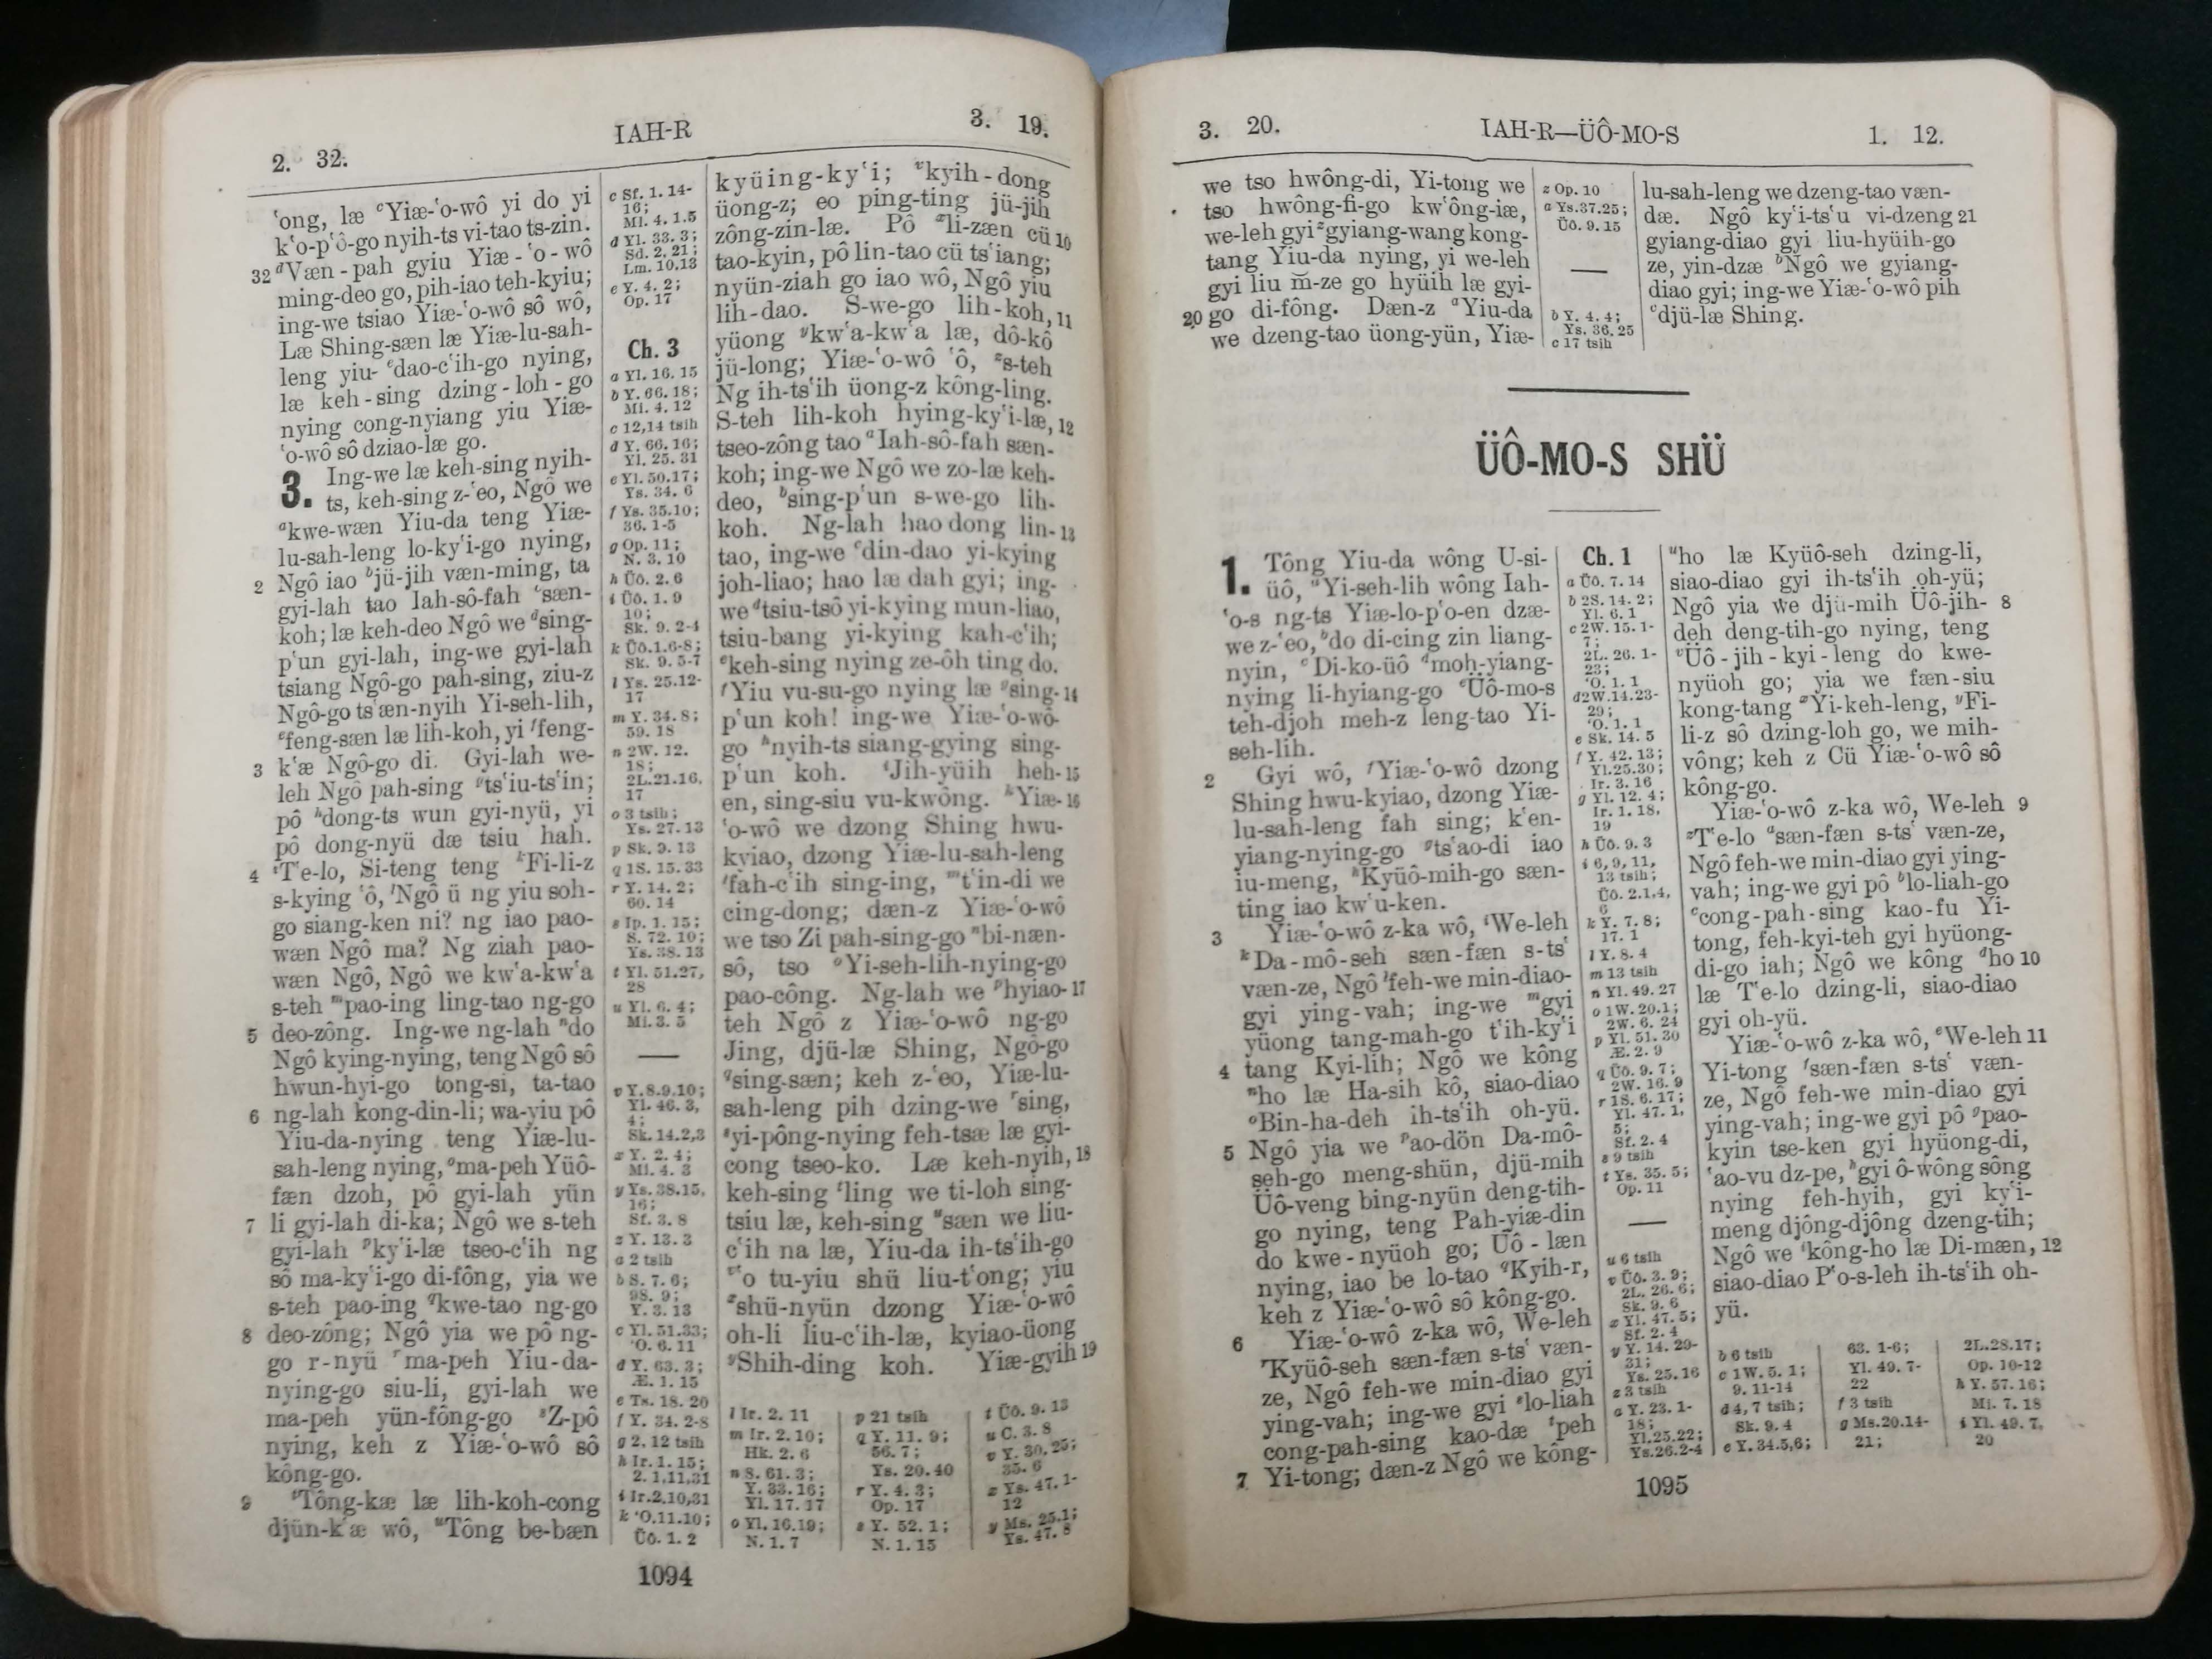 2. 32.
IAH-R
3. 19.
‘ong, læ ᶜYiæ-‘o-wô yi do yi
k‘o-p‘ô-go nyih-ts vi-tao ts-zin.
32 ᵈVæn-pah gyiu Yiæ-‘o-wô
ming-deo go, pih-iao teh-kyiu;
ing-we tsiao Yiæ-‘o-wô sô wô,
Læ Shing-sæn læ Yiæ-lu-sah-
leng yiu-ᵉdao-c‘ih-go nying,
læ keh-sing dzing-loh-go
nying cong-nyiang yiu Yiæ-
‘o-wô sô dziao-læ go.
3. Ing-we læ keh-sing nyih-
ts, keh-sing z-‘eo, Ngô we
ᵃkwe-wæn Yiu-da teng Yiæ-
lu-sah-leng lo-ky‘i-go nying,
2 Ngô iao ᵇjü-jih væn-ming, ta
gyi-lah tao Iah-sô-fah ᶜsæn-
koh; læ keh-deo Ngô we ᵈsing-
p‘un gyi-lah, ing-we gyi-lah
tsiang Ngô-go pah-sing, ziu-z
Ngô-go ts‘æn-nyih Yi-seh-lih,
ᵉfeng-sæn læ lih-koh, yi ᶠfeng-
3 k‘æ Ngô-go di. Gyi-lah we-
leh Ngô pah-sing ᵍts‘iu-ts‘in;
pô ʰdong-ts wun gyi-nyü, yi
pô dong-nyü dæ tsiu hah.
4 ⁱT‘e-lo, Si-teng teng ᵏFi-li-z
s-kying ‘ô, ˡNgô ü ng yiu soh-
go siang-ken ni? ng iao pao-
wæn Ngô ma? Ng ziah pao-
wæn Ngô, Ngô we kw‘a-kw‘a
s-teh ᵐpao-ing ling-tao ng-go
5 deo-zông. Ing-we ng-lah ⁿdo
Ngô kying-nying, teng Ngô sô
hwun-hyi-go tong-si, ta-tao
6 ng-lah kong-din-li; wa-yiu pô
Yiu-da-nying teng Yiæ-lu-
sah-leng nying, ᵒma-peh Yüô-
fæn dzoh, pô gyi-lah yün
7 li gyi-lah di-ka; Ngô we s-teh
gyi-lah ᵖky‘i-læ tseo-c‘ih ng
sô ma-ky‘i-go di-fông, yia we
s-teh pao-ing ᑫkwe-tao ng-go
8 deo-zông; Ngô yia we pô ng-
go r-nyü ʳma-peh Yiu-da-
nying-go siu-li, gyi-lah we
ma-peh yün-fông-go ˢZ-pô
nying, keh z Yiæ-‘o-wô sô
kông-go.
9 ᵗTông-kæ læ lih-koh-cong
djün-k‘æ wô, ᵘTông be-bæn
c Sf. 1. 14-
16;
Ml. 4. 1.5
d Yl. 33. 3;
Sd. 2. 21;
Lm. 10.13
e Y. 4. 2;
Op. 17
Ch. 3
a Yl. 16. 15
b Y. 66. 18;
Mi. 4. 12
c 12,14 tsih
d Y. 66. 16;
Yl. 25. 31
e Yl. 50.17;
Ys. 34. 6
f Ys. 35.10;
36. 1-5
g Op. 11;
N. 3. 10
h Üô. 2. 6
i Üô. 1. 9
10;
Sk. 9. 2-4
k Üô.1.6-8;
Sk. 9. 5-7
l Ys. 25.12-
17
m Y. 34. 8;
59. 18
n 2W. 12.
18;
2L.21.16,
17
o 3 tsih;
Ys. 27. 13
p Sk. 9. 13
q 1S. 15.33
r Y. 14. 2;
60. 14
s Ip. 1. 15;
S. 72. 10;
Ys. 38. 13
t Yl. 51.27,
28
u Yl. 6. 4;
Mi. 3. 5
v Y.8.9.10;
Yl. 46. 3,
4;
Sk. 14.2,3
x Y. 2. 4;
Mi. 4. 3
y Ys. 38.15,
16;
Sf. 3. 8
z Y. 13. 3
a 2 tsih
b S. 7. 6;
98. 9;
Y. 3. 13
c Yl. 51.33;
‘O. 6. 11
d Y. 63. 3;
Æ. 1. 15
e Ts. 18. 20
f Y. 34. 2-8
g 2. 12 tsih
h Ir. 1. 15;
2. 1,11,31
i Ir.2.10,31
k ‘O.11.10;
Üô. 1. 2
kyüing-ky‘i; ᵛkyih-dong
üong-z; eo ping-ting jü-jih
zông-zin-læ. Pô ˣli-zæn cü 10
tao-kyin, pô lin-tao cü ts‘iang;
nyün-ziah go iao wô, Ngô yiu
lih-dao. S-we-go lih-koh, 11
yüong ʸkw‘a-kw‘a læ, dô-kô
jü-long; Yiæ-‘o-wô ‘ô, ᶻs-teh
Ng ih-ts‘ih üong-z kông-ling.
S-teh lih-koh hying-ky‘i-læ, 12
tseo-zông tao ᵃIah-sô-fah sæn-
koh; ing-we Ngô we zo-læ keh-
deo, ᵇsing-p‘un s-we-go lih-
koh. Ng-lah hao dong lin- 13
tao, ing-we ᶜdin-dao yi-kying
joh-liao; hao læ dah gyi; ing-
we ᵈtsiu-tsô yi-kying mun-liao,
tsiu-bang yi-kying kah-c‘ih;
ᵉkeh-sing nying ze-ôh ting do.
ᶠYiu vu-su-go nying læ ᵍsing- 14
p‘un koh! ing-we Yiæ-‘o-wô-
go ʰnyih-ts siang-gying sing-
p‘un koh. ⁱJih-yüih heh- 15
en, sing-siu vu-kwông. ᵏYiæ- 16
‘o-wô we dzong Shing hwu-
kyiao, dzong Yiæ-lu-sah-leng
ˡfah-c‘ih sing-ing, ᵐt‘in-di we
cing-dong; dæn-z Yiæ-‘o-wô
we tso Zi pah-sing-go ⁿbi-næn-
sô, tso ᵒYi-seh-lih-nying-go
pao-công. Ng-lah we ᵖhyiao- 17
teh Ngô z Yiæ-‘o-wô ng-go
Jing, djü-læ Shing, Ngô-go
ᑫsing-sæn; keh z-‘eo, Yiæ-lu-
sah-leng pih dzing-we ʳsing,
ˢyi-pông-nying feh-tsæ læ gyi-
cong tseo-ko. Læ keh-nyih, 18
keh-sing ᵗling we ti-loh sing-
tsiu læ, keh-sing ᵘsæn we liu-
c‘ih na læ, Yiu-da ih-ts‘ih-go
ᵛ‘o tu-yiu shü liu-t‘ong; yiu
ˣshü-nyün dzong Yiæ-‘o-wô
oh-li liu-c‘ih-læ, kyiao-üong
ʸShih-ding koh. Yiæ-gyih 19
l Ir. 2. 11
m Ir. 2. 10;
Hk. 2. 6
n S. 61. 3;
Y. 33. 16;
Yl. 17. 17
o Yl. 16.19;
N. 1. 7
p 21 tsih
q Y. 11. 9;
56. 7;
Ys. 20. 40
r Y. 4. 3;
Op. 17
s Y. 52. 1;
N. 1. 15
t Üô. 9. 13
u C. 3. 8
v Y. 30. 25;
35. 6
x Ys. 47. 1-
12
y Ms. 25.1;
Ys. 47. 8
1094
3. 20.
IAH-R—ÜÔ-MO-S
1. 12.
we tso hwông-di, Yi-tong we
tso hwông-fi-go kw‘ông-iæ,
we-leh gyi ᶻgyiang-wang kong-
tang Yiu-da nying, yi we-leh
gyi liu m̆-ze go hyüih læ gyi-
20 go di-fông. Dæn-z ᵃYiu-da
we dzeng-tao üong-yün, Yiæ-
z Op. 10
a Ys.37.25;
Üô. 9. 15
b Y. 4. 4;
Ys. 36. 25
c 17 tsih
lu-sah-leng we dzeng-tao væn-
dæ. Ngô ky‘i-ts‘u vi-dzeng 21
gyiang-diao gyi liu-hyüih-go
ze, yin-dzæ ᵇNgô we gyiang-
diao gyi; ing-we Yiæ-‘o-wô pih
ᶜdjü-læ Shing.
ÜÔ-MO-S SHÜ
1. Tông Yiu-da wông U-si-
üô, ᵃYi-seh-lih wông Iah-
‘o-s ng-ts Yiæ-lo-p‘o-en dzæ-
we z-‘eo, ᵇdo di-cing zin liang-
nyin, ᶜDi-ko-üô ᵈmoh-yiang-
nying li-hyiang-go ᵉÜô-mo-s
teh-djoh meh-z leng-tao Yi-
seh-lih.
2 Gyi wô, ᶠYiæ-‘o-wô dzong
Shing hwu-kyiao, dzong Yiæ-
lu-sah-leng fah sing; k‘en-
yiang-nying-go ᵍts‘ao-di iao
iu-meng, ʰKyüô-mih-go sæn-
ting iao kw‘u-ken.
3 Yiæ-‘o-wô z-ka wô, ⁱWe-leh
ᵏDa-mô-seh sæn-fæn s-ts‘
væn-ze, Ngô ˡfeh-we min-diao-
gyi ying-vah; ing-we ᵐgyi
yüong tang-mah-go t‘ih-ky‘i
4 tang Kyi-lih; Ngô we kông
ⁿho læ Ha-sih kô, siao-diao
ᵒBin-ha-deh ih-ts‘ih oh-yü.
5 Ngô yia we ᵖao-dön Da-mô-
seh-go meng-shün, djü-mih
Üô-veng bing-nyün deng-tih-
go nying, teng Pah-yiæ-din
do kwe-nyüoh go; Üô-læn
nying, iao be lo-tao ᑫKyih-r,
keh z Yiæ-‘o-wô sô kông-go.
6 Yiæ-‘o-wô z-ka wô, We-leh
ʳKyüô-seh sæn-fæn s-ts‘ væn-
ze, Ngô feh-we min-diao gyi
ying-vah; ing-we gyi ˢlo-liah
cong-pah-sing kao-dæ ᵗpeh
7 Yi-tong; dæn-z Ngô we kông-
Ch. 1
a Üô. 7. 14
b 2S. 14. 2;
Yl. 6. 1
c 2W. 15. 1-
7;
2L. 26. 1-
23;
‘O. 1. 1
d2W.14.23-
29;
‘O. 1. 1
e Sk. 14. 5
f Y. 42. 13;
Yl.25.30;
Ir. 3. 16
g Yl. 12. 4;
Ir. 1. 18,
19
h Üô. 9. 3
i 6, 9, 11,
13 tsih;
Üô. 2.1,4,
6
k Y. 7. 8;
17. 1
l Y. 8. 4
m 13 tsih
n Yl. 49. 27
o 1W. 20.1;
2W. 6. 24
p Yl. 51. 30
Æ. 2. 9
q Üô. 9. 7;
2W. 16. 9
r 1S. 6. 17;
Yl. 47. 1,
5;
Sf. 2. 4
s 9 tsih
t Ys. 35. 5;
Op. 11
u 6 tsih
v Üô. 3. 9;
2L. 26. 6;
Sk. 9. 6
x Yl. 47. 5;
Sf. 2. 4
y Y. 14. 29-
31;
Ys. 25.16
z 3 tsih
a Y. 23. 1-
18;
Yl.25.22;
Ys.26.2-4
ᵘho læ Kyüô-seh dzing-li,
siao-diao gyi ih-ts‘ih oh-yü;
Ngô yia we djü-mih Üô-jih- 8
deh deng-tih-go nying, teng
ᵛÜô-jih-kyi-leng do kwe-
nyüoh go; yia we fæn-siu
kong-tang ˣYi-keh-leng, ʸFi-
li-z sô dzing-loh go, we mih-
vông; keh z Cü Yiæ-‘o-wô sô
kông-go.
Yiæ-‘o-wô z-ka wô, We-leh 9
ᶻT‘e-lo ᵃsæn-fæn s-ts‘ væn-ze,
Ngô feh-we min-diao gyi ying-
vah; ing-we gyi pô ᵇlo-liah-go
ᶜcong-pah-sing kao-fu Yi-
tong, feh-kyi-teh gyi hyüong-
di-go iah; Ngô we kông ᵈho 10
læ T‘e-lo dzing-li, siao-diao
gyi oh-yü.
Yiæ-‘o-wô z-ka wô, ᵉWe-leh 11
Yi-tong ᶠsæn-fæn s-ts‘ væn-
ze, Ngô feh-we min-diao gyi
ying-vah; ing-we gyi pô ᵍpao-
kyin tse-ken gyi hyüong-di,
‘ao-vu dz-pe, ʰgyi ô-wông sông
nying feh-hyih, gyi ky‘i-
meng djông-djông dzeng-tih;
Ngô we ⁱkông-ho læ Di-mæn, 12
siao-diao P‘o-s-leh ih-ts‘ih oh-
yü.
b 6 tsih
c 1W. 5. 1;
9. 11-14
d 4, 7 tsih;
Sk. 9. 4
e Y. 34.5,6;
63. 1-6;
Yl. 49. 7-
22
f 3 tsih
g Ms.20.14-
21;
2L.28.17;
Op. 10-12
h Y. 57. 16;
Mi. 7. 18
i Yl. 49. 7,
20
1095